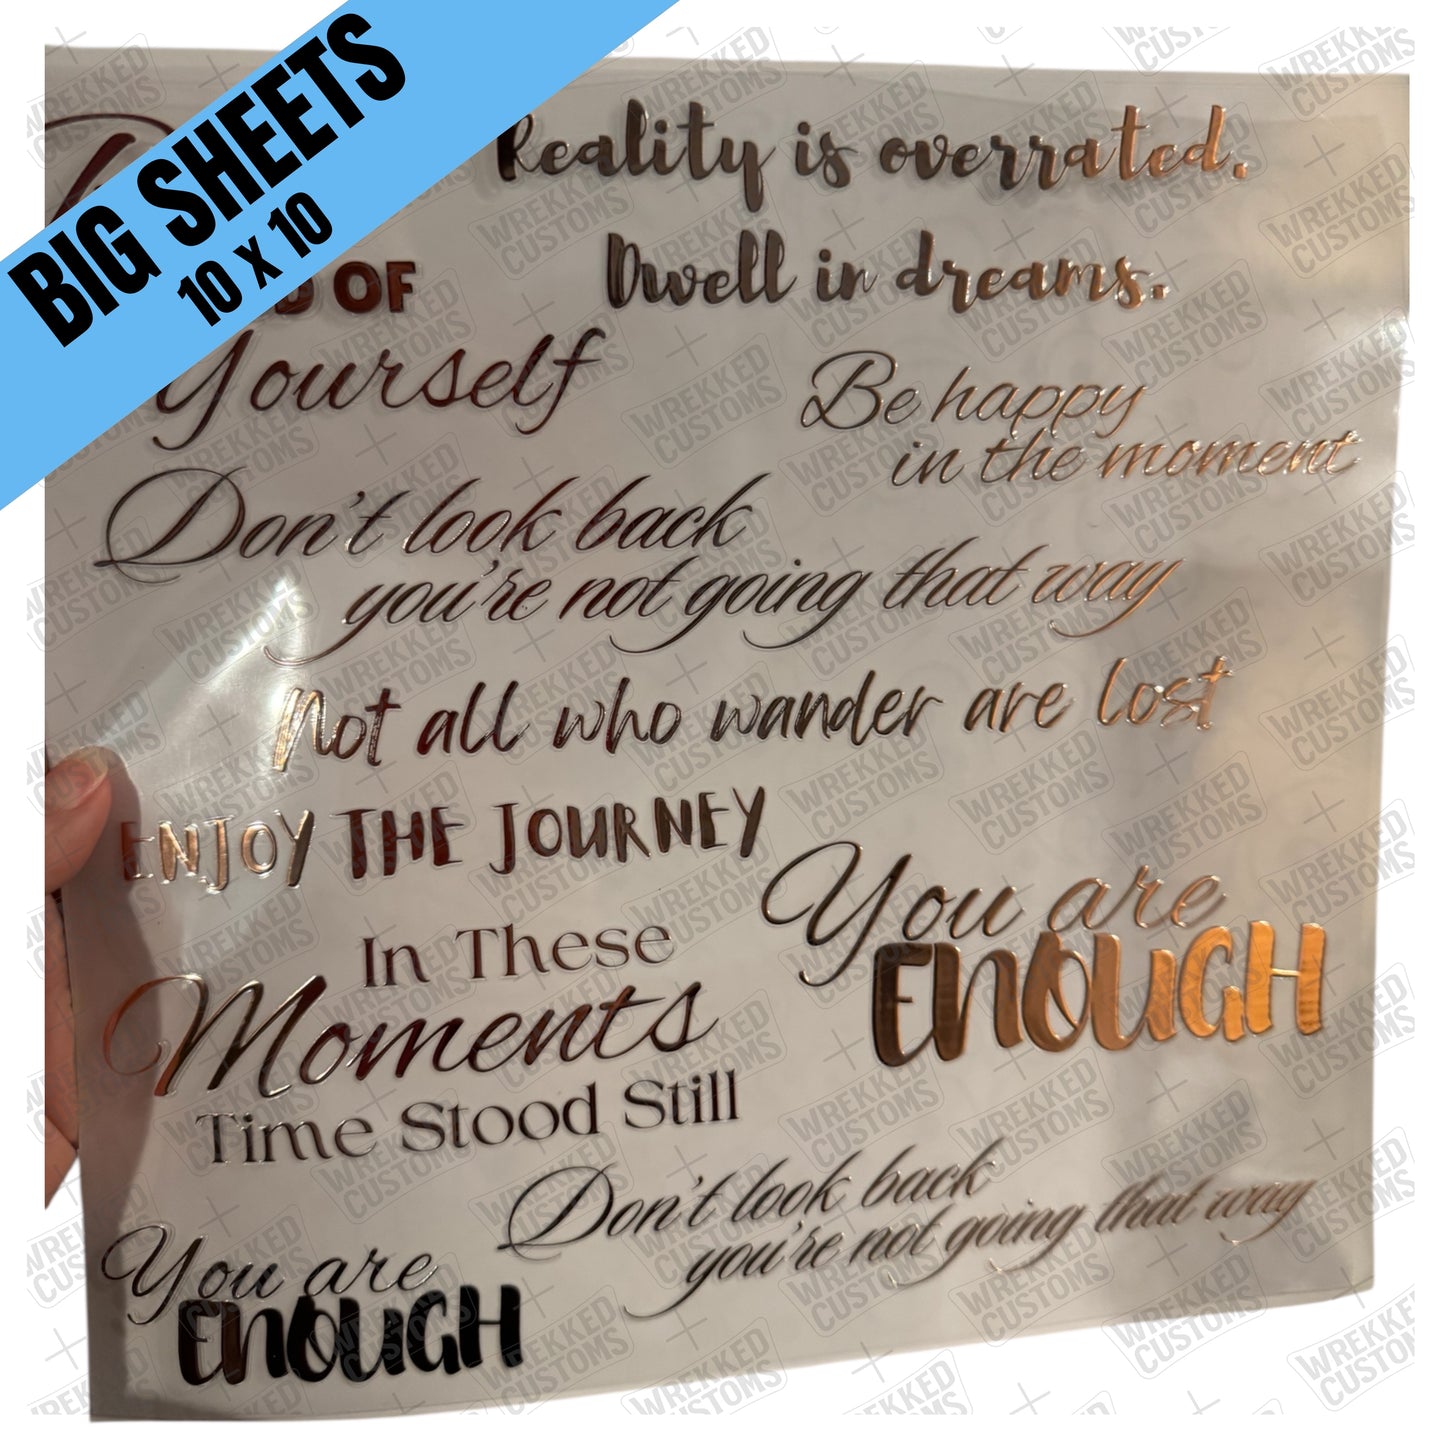 BIG SHEETS
10 x 10
Reality is overrated.
Dwell in dreams.
OF
Yourself
Be happy
in the moment
Don't look back
you're not going that way
Not all who wander are lost
ENJOY THE JOURNEY
You are
ENOUGH
In These
Moments
Time Stood Still
Don't look back
you're not going that way
You are
ENOUGH
WREKKED
CUSTOMS